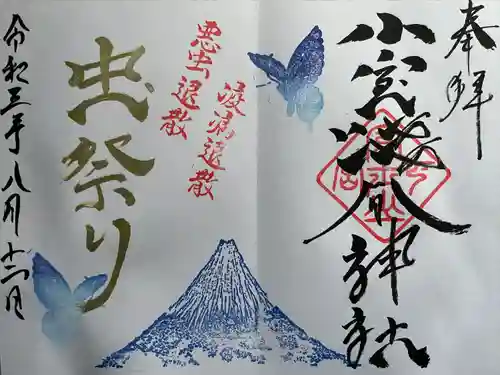 奉拝
小室浅間神社
悪虫退散
疫病退散
虫祭り
令和三年八月十二日